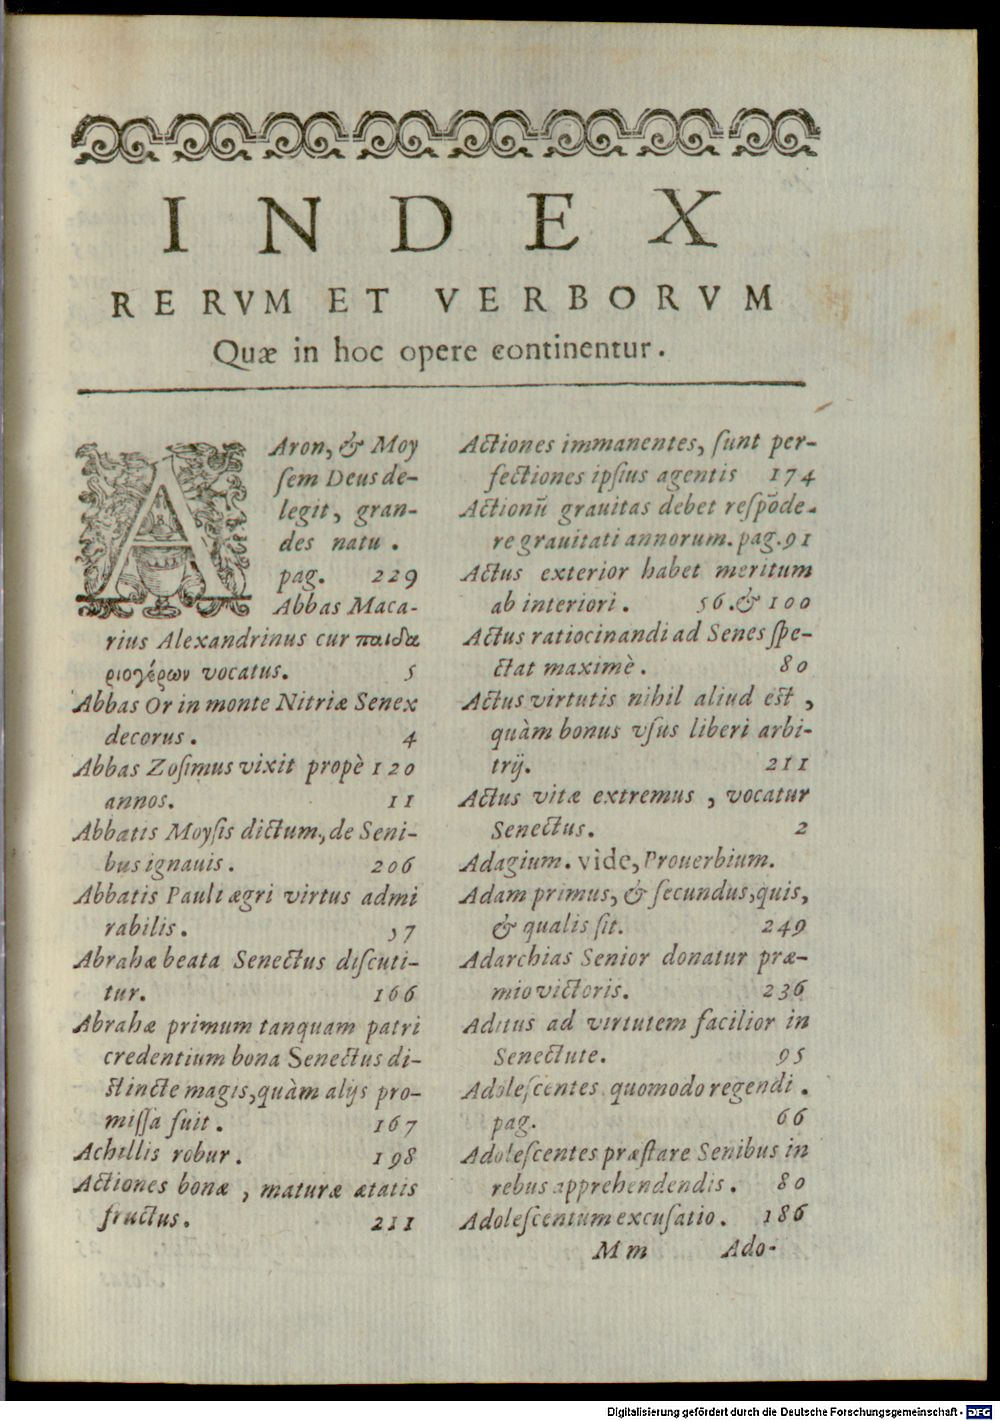 INDEX
RERVM ET VERBORVM
Quæ in hoc opere continentur.
AAron, & Moy
sem Deus de-
legit, gran-
des natu.
pag. 229
Abbas Maca-
rius Alexandrinus cur παιδα
ριογέρων vocatus. 5
Abbas Or in monte Nitriæ Senex
decorus. 4
Abbas Zosimus vixit propè 120
annos. 11
Abbatis Moysis dictum, de Seni-
bus ignauis. 206
Abbatis Pauli ægri virtus admi
rabilis. 37
Abrahæ beata Senectus discuti-
tur. 166
Abrahæ primum tanquam patri
credentium bona Senectus di-
stincte magis, quàm alijs pro-
missa fuit. 167
Achillis robur. 198
Actiones bonæ, maturæ ætatis
fructus. 211
Actiones immanentes, sunt per-
fectiones ipsius agentis 174
Actionũ grauitas debet respõde-
re grauitati annorum. pag. 91
Actus exterior habet meritum
ab interiori. 56. & 100
Actus ratiocinandi ad Senes spe-
ctat maximè. 80
Actus virtutis nihil aliud est,
quàm bonus vsus liberi arbi-
trij. 211
Actus vitæ extremus, vocatur
Senectus. 2
Adagium. vide, Prouerbium.
Adam primus, & secundus, quis,
& qualis sit. 249
Adarchias Senior donatur præ-
mio victoris. 236
Aditus ad virtutem facilior in
Senectute. 95
Adolescentes quomodo regendi.
pag. 66
Adolescentes præstare Senibus in
rebus apprehendendis. 80
Adolescentum excusatio. 186
Mm Ado-
Digitalisierung gefördert durch die Deutsche Forschungsgemeinschaft - DFG